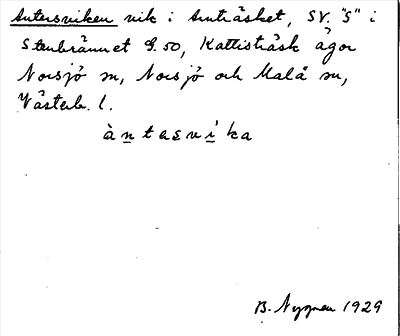 Antersviken vik i Anträsket, SV. "S" i
Stenbrännet G.50, Kattisträsk ägor
Norsjö sn, Norsjö och Malå sn,
Västerb. l.
àntasvíka
B. Nygren 1929